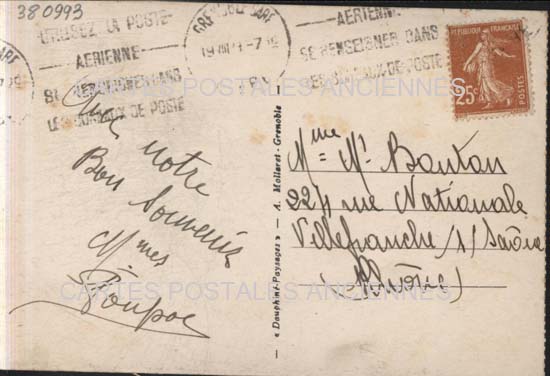 380993
UTILISEZ LA POSTE
AERIENNE
SE RENSEIGNER DANS
LES BUREAUX DE POSTE
GRENOBLE GARE
AERIENNE
SE RENSEIGNER DANS
LES BUREAUX DE POSTE
25c
POSTES
CARTES POSTALES ANCIENNES
Avec notre
Bon Souvenir
Mmes
« Dauphiné-Paysages » — A. Mollaret - Grenoble
Mme Mt Bantan
224 rue Nationale
Villefranche s/ Saône
(Rhône)
CARTES POSTALES ANCIENNES